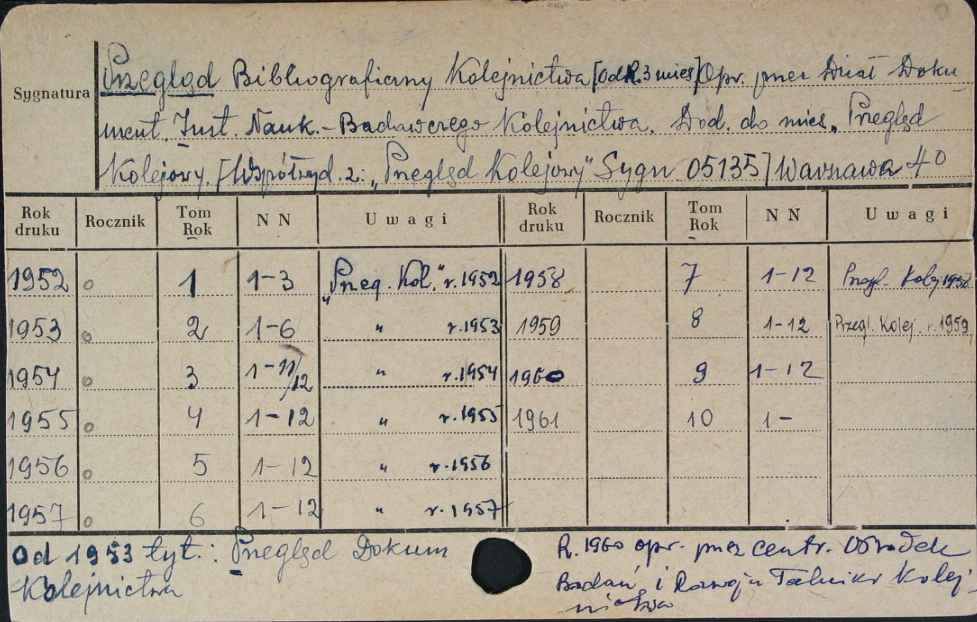 Sygnatura
Przegląd Bibliograficzny Kolejnictwa [od R. 3 mies] Opr. przez Dział Doku-
ment. Inst. Nauk.-Badawczego Kolejnictwa. Dod. do mies. „Przegląd
Kolejowy. [Współwyd. z: „Przegląd Kolejowy” Sygn 05135] Warszawa 4o
Rok druku Rocznik Tom Rok NN Uwagi Rok druku Rocznik Tom Rok NN Uwagi
1952 1 1-3 „Przeg. Kol.” r. 1952 1958 7 1-12 Przegl. Kolej 1958
1953 2 1-6 „ r. 1953 1959 8 1-12 Przegl. Kolej. r. 1959
1954 3 1-11/12 „ r. 1954 1960 9 1-12
1955 4 1-12 „ r. 1955 1961 10 1-
1956 5 1-12 „ r. 1956
1957 6 1-12 „ r. 1957
Od 1953 tyt.: Przegląd Dokum
Kolejnictwa
R. 1960 opr. przez centr. Ośrodek
Badań i Rozwoju Techniki Kolej-
nictwa